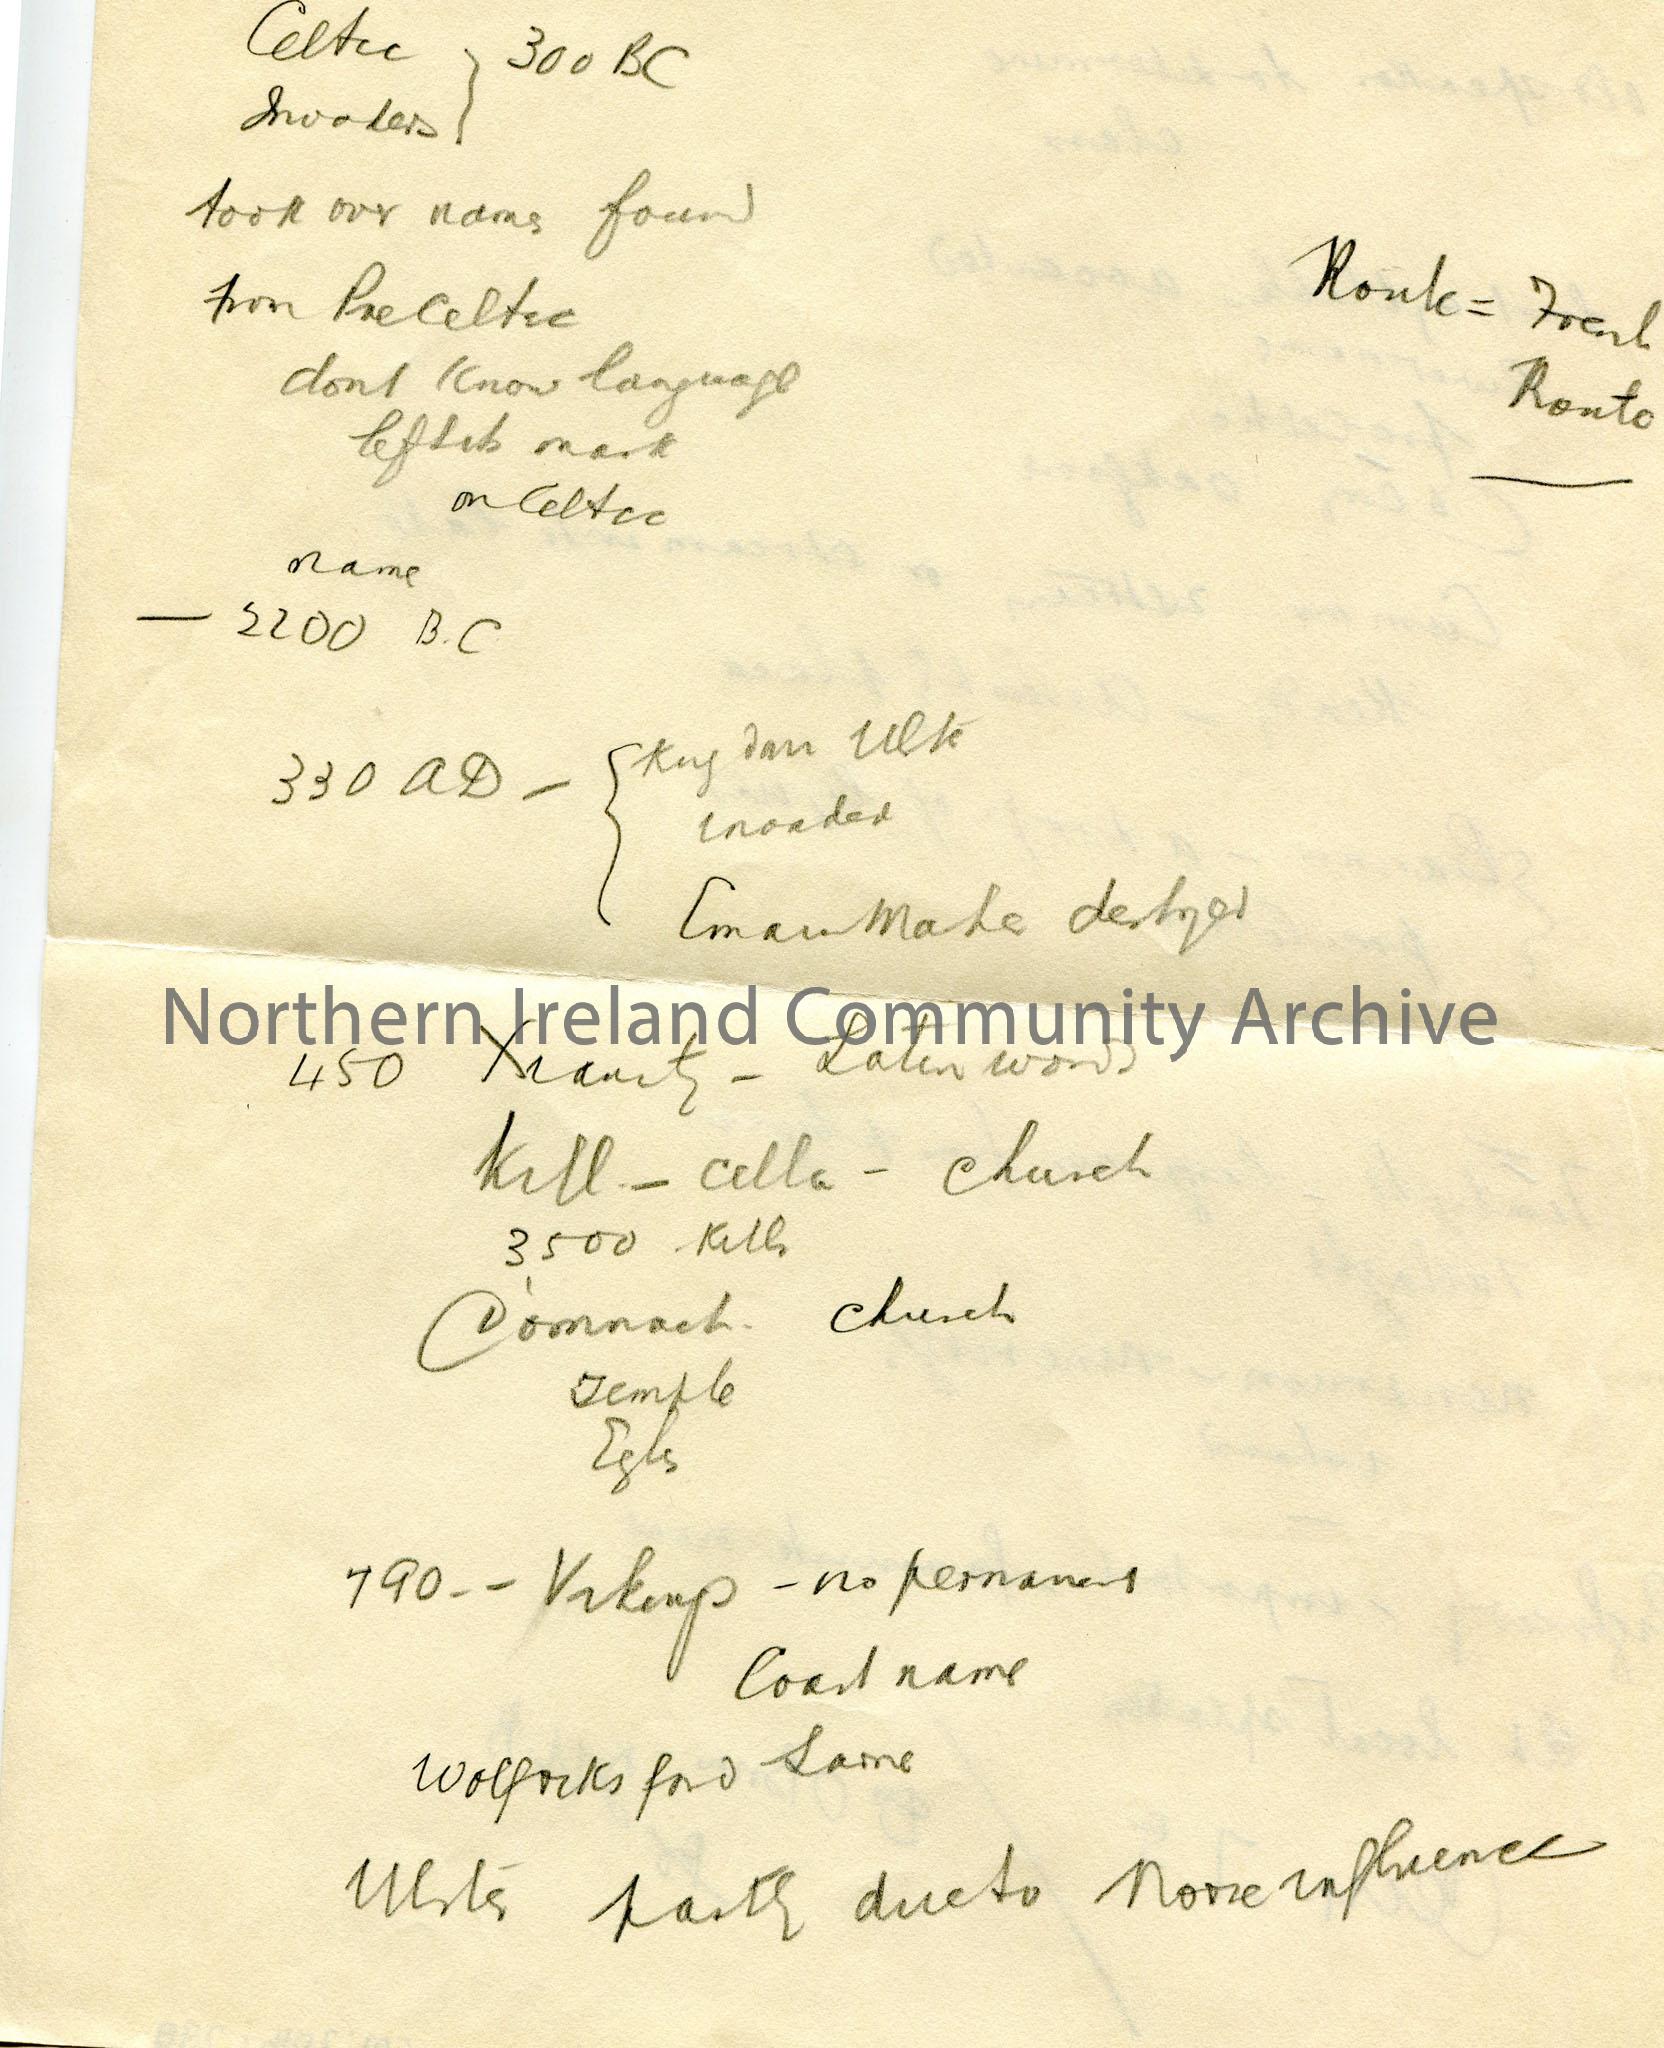 Celtic } 300 BC
Invaders
took over names found
from PreCeltic
dont know language
left its mark
on Celtic
name
— 2200 B.C
Rouk = French
Routo
330 AD — { Kingdom Ulst
invaded
Emain Macha destroyed
Northern Ireland Community Archive
450 Xianity - Latin words
Kill - cella - church
3500 Kills
Domnach. church
Temple
Egls
790 - - Vikings - no permanent
Coast name
Wolfricks ford Larne
Ulster partly due to Norse influence